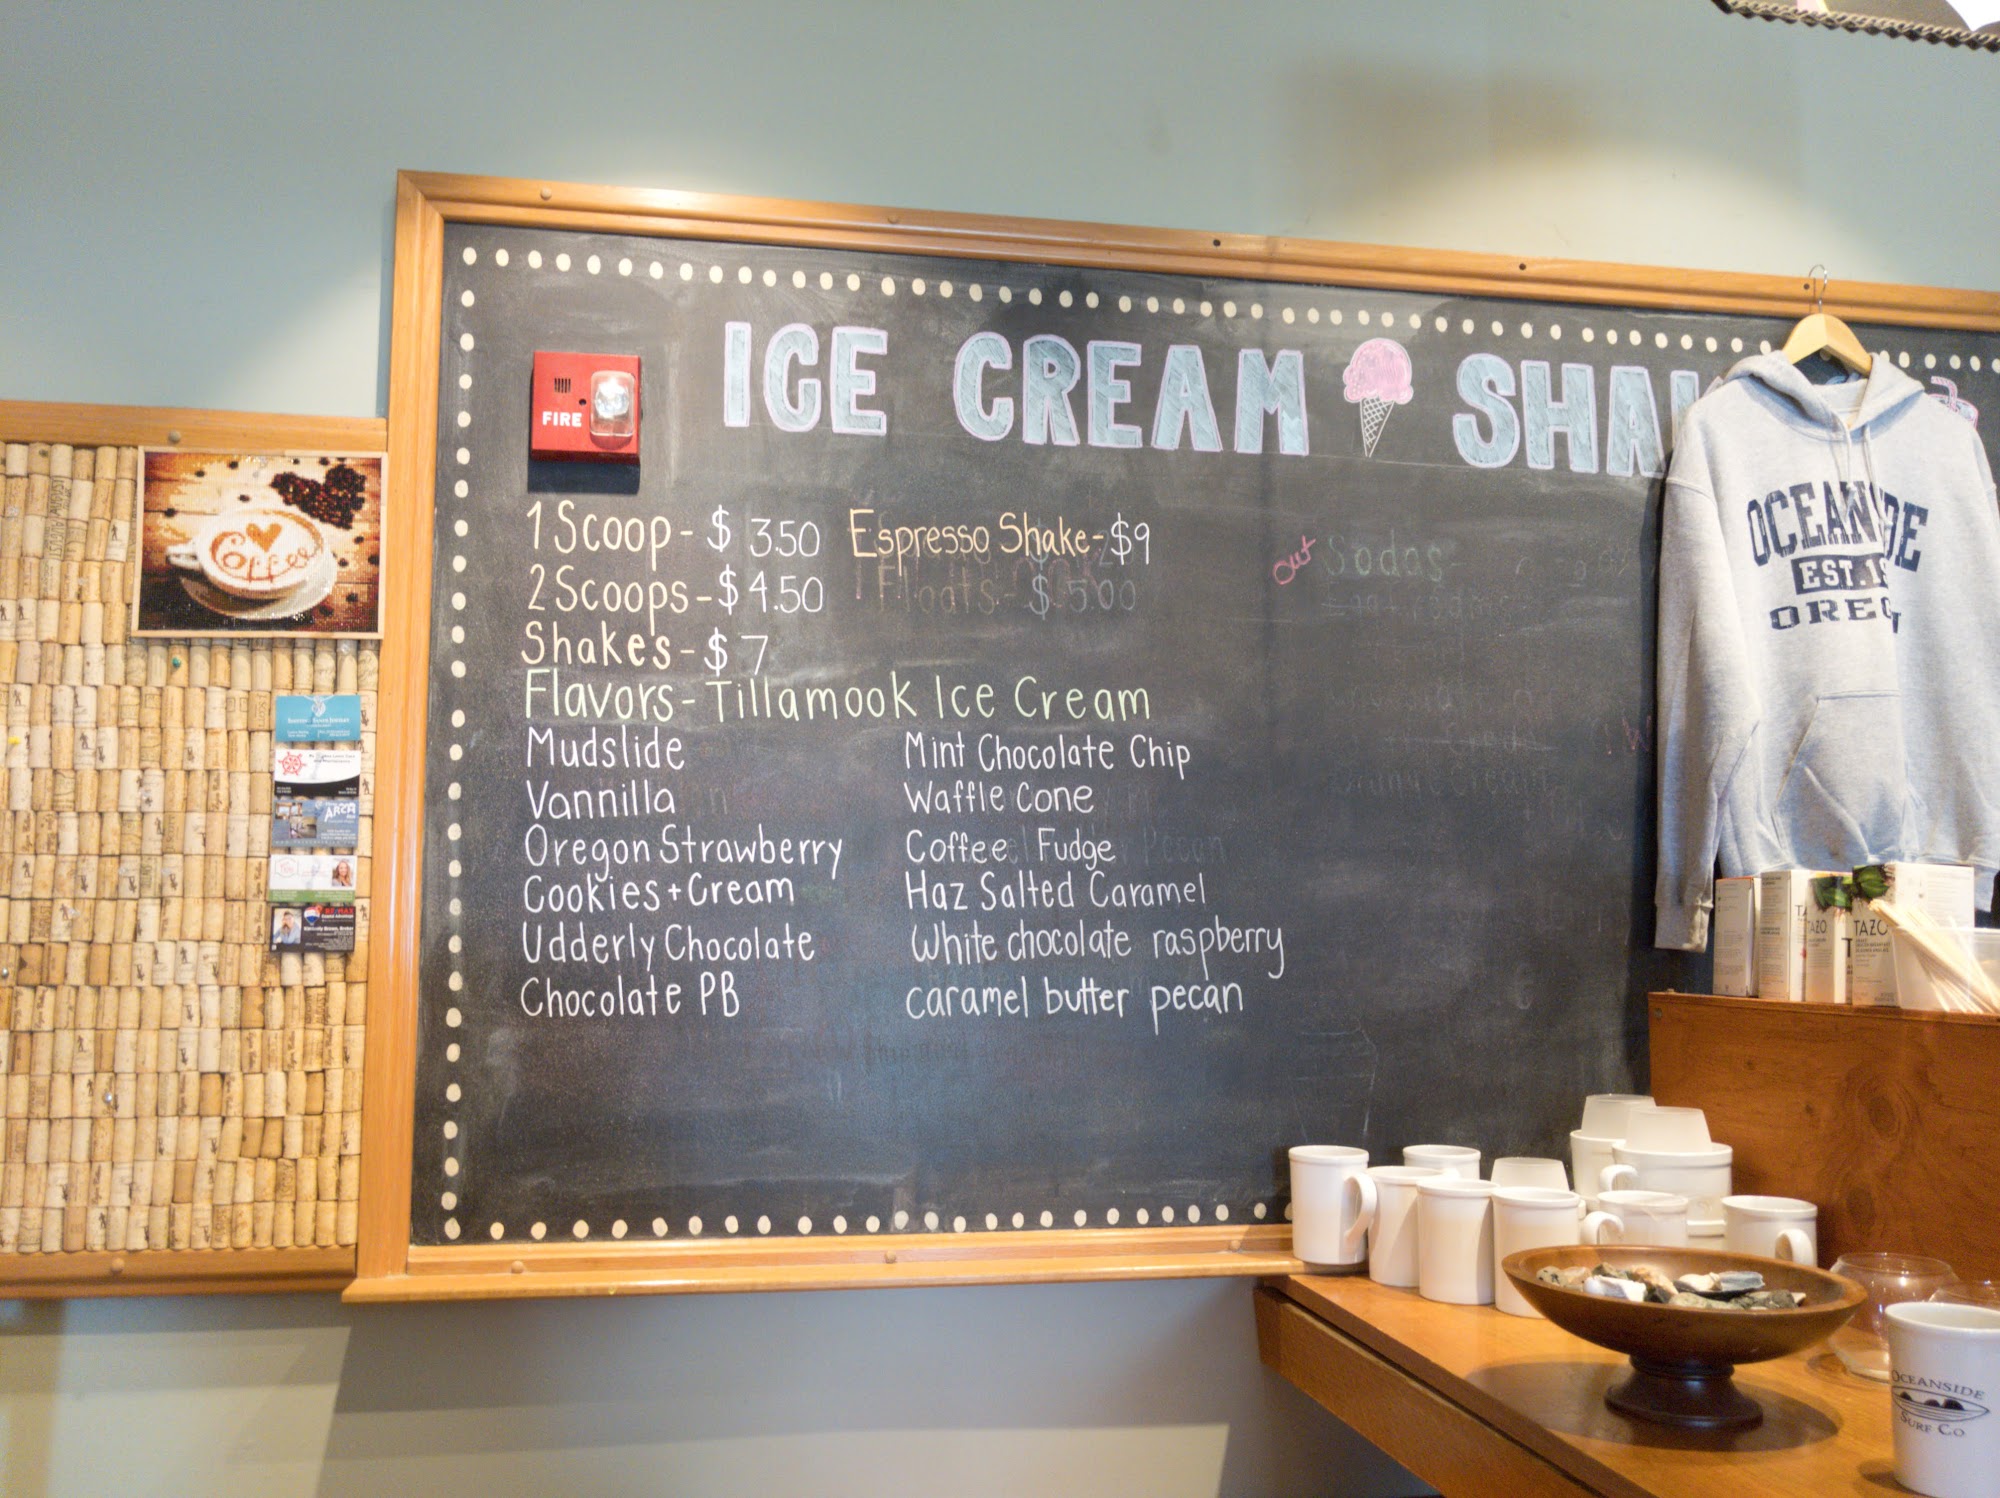 ICE CREAM SHA
FIRE
1 Scoop - $ 3.50 Espresso Shake - $9
2 Scoops - $ 4.50 Floats - $ 5.00
Shakes - $ 7
out Sodas -
Flavors - Tillamook Ice Cream
Mudslide Mint Chocolate Chip
Vannilla Waffle cone
Oregon Strawberry Coffee Fudge
Cookies + Cream Haz Salted Caramel
Udderly Chocolate White chocolate raspberry
Chocolate PB caramel butter pecan
Coffee
OCEANSIDE
EST. 1
OREG
TAZO
TAZO
OCEANSIDE
SURF CO